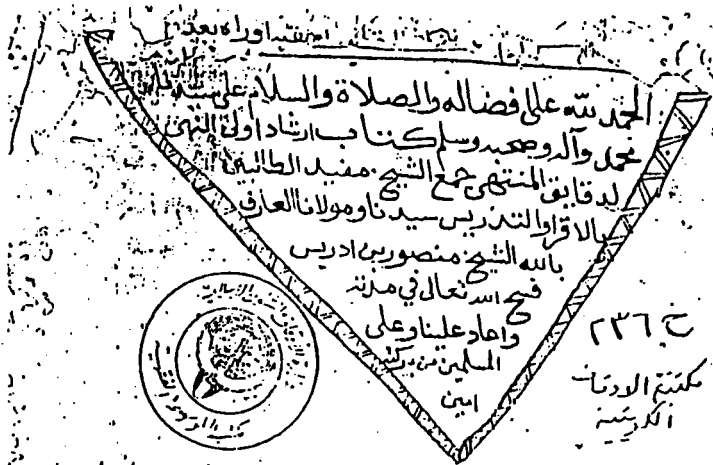 الحمد لله على فضاله والصلاة والسلام على سيدنا
محمد وآله وصحبه وسلم كتاب ارشاد اولى النهى
لدقايق المنتهى جمع الشيخ مفيد الطالبين
بالاقرا والتدريس سيدنا ومولانا العارف
بالله الشيخ منصور بن ادريس
فسح الله تعالى في مدته
واعاد علينا وعلى
المسلمين من بركته
امين
خ ٢٣٦
مكتبة الاوقاف
الكويتية